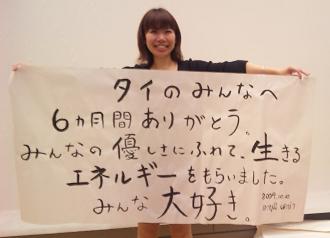 タイのみんなへ
6ヵ月間ありがとう。
みんなの優しさにふれて、生きる
エネルギーをもらいました。
みんな大好き。